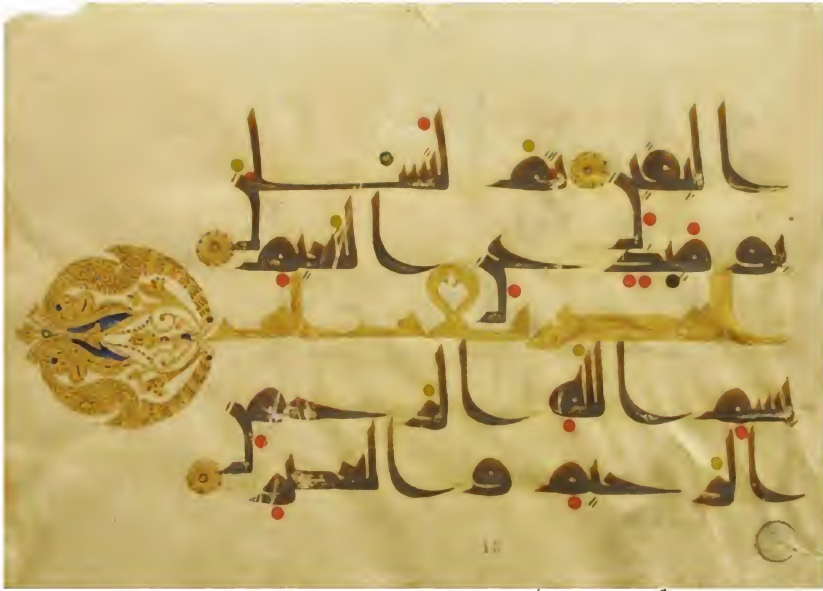 اليقين ثم لتسلن
يومئذ عن النعيم
بسم الله الرحمن
الرحيم والعصر